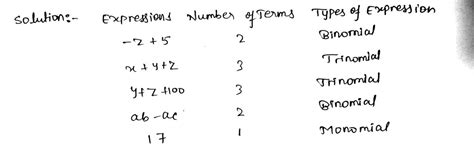 Solution:- Expressions Number of Terms Types of Expression
-z+5 2 Binomial
x+y+z 3 Trinomial
y+z+100 3 Trinomial
ab-ac 2 Binomial
17 1 Monomial